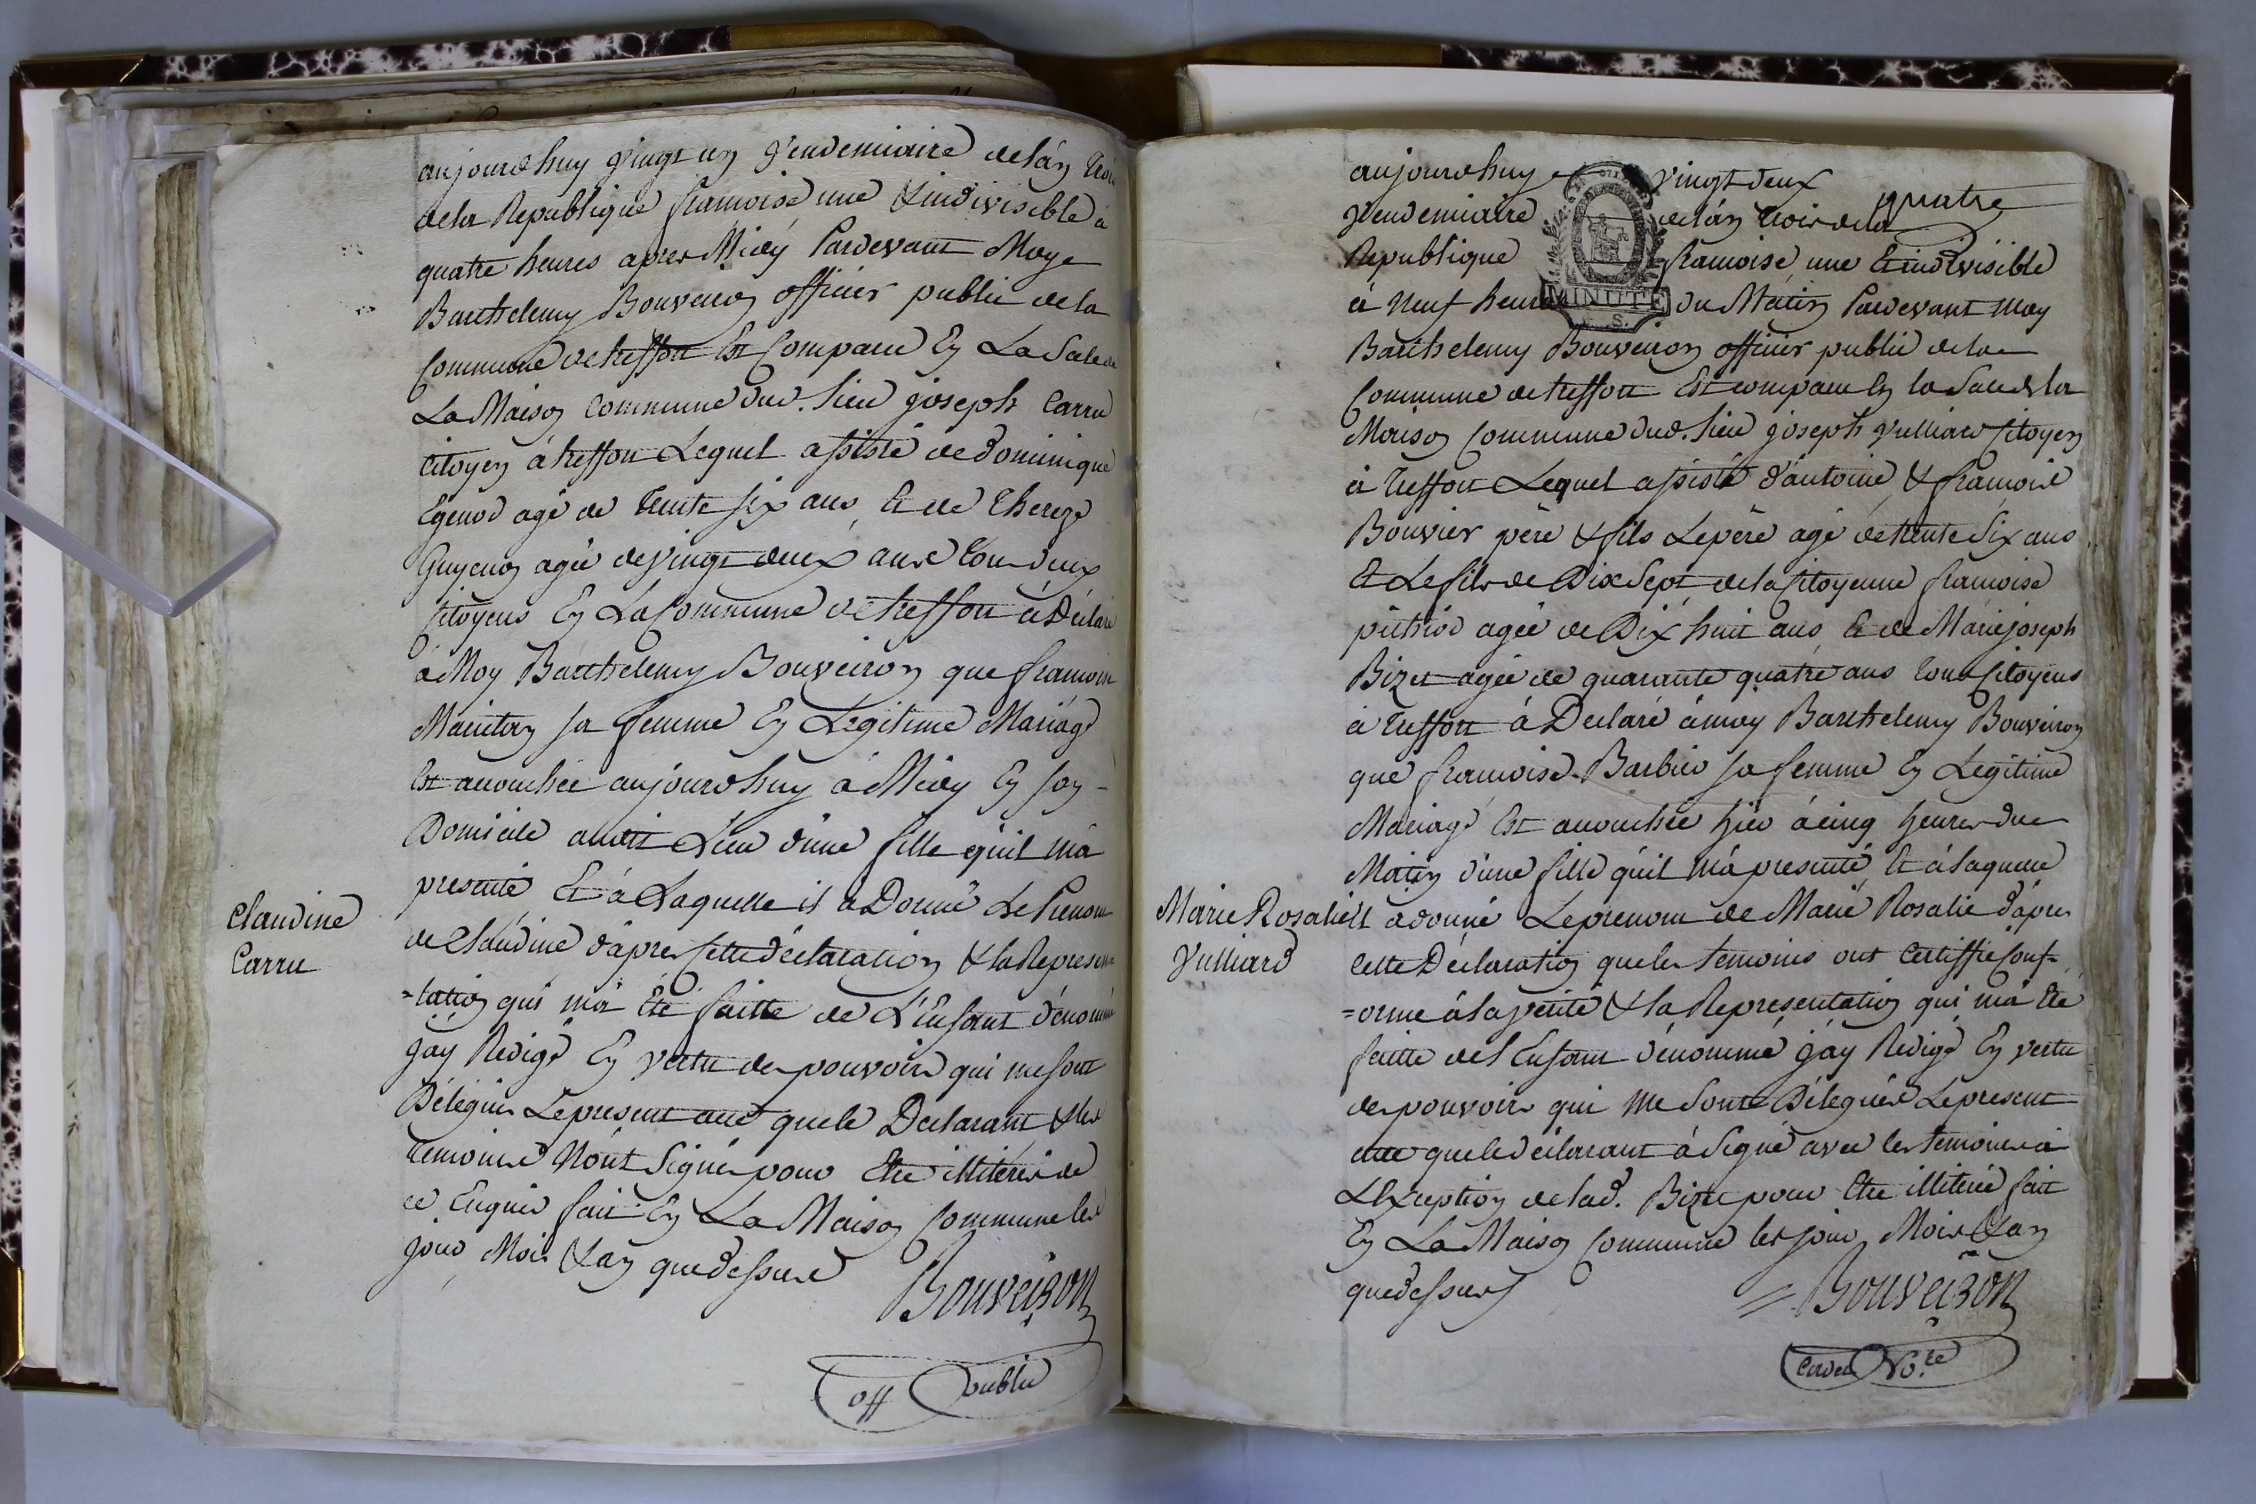 aujourdhuy vingt un vendemiaire delán trois
dela Republique francoise une & indivisible à
quatre heures apres Midy Pardevant Moy
Barthelemy Bouveiron officier public dela
Commune de treffort Est Comparu En La Sale de
La Maison Commune dud. lieu joseph Carru
Citoyen à treffort Lequel assisté de dominique
Egenod agé de trente six ans, Et de thereze
Guyenon agée de vingt deux ans tous deux
Citoyens En La Commune de treffort à Déclaré
à Moy Barthelemy Bouveiron que francoise
sa femme En Legitime Mariage
Est acouchée aujourdhuy à Midy En son
Domicile audit Lieu d'une fille qu'il m'à
presenté Et à Laquelle il a Donné Le Prenom
de Claudine d'apres cette déclaration & la Represen-
Claudine
Carru
=tation qui m'à Eté faitte de L'Enfant dénommé
j'ay Redigé En vertu des pouvoirs qui me sont
Délégués Le present acte que le Declarant & les
temoins N'ont Signés pour Etre illiterés de
ce Enquis fait En La Maison Commune les
jour, Mois & an que dessus
Bouveiron
off public
aujourdhuy vingt deux
quatre
vendemiaire delán trois dela
Republique francoise une Et indivisible
à Neuf heures du Matin Pardevant moy
MINUTE
Barthelemy Bouveiron officier public dela
Commune de treffort Est comparu En la Sale de la
Maison Commune dud. lieu joseph vulliard Citoyen
à treffort Lequel assisté d'antoine & francois
Bouvier père & fils Le père agé de trente Six ans
Et Le fils de Dix Sept, de la Citoyenne francoise
agée de Dix huit ans, Et de Marie joseph
Bizet agée de quarante quatre ans tous Citoyens
à treffort à Declaré à moy Barthelemy Bouveiron
que francoise Barbier sa femme En Legitime
Mariage Est acouchée hier à cinq heures du
Matin d'une fille qu'il m'à presenté, Et à laquelle
Marie Rosalie
Vulliard
il adonné Le prenom de Marie Rosalie d'après
cette Déclaration que les temoins ont Certiffié Conf-
=orme à la verité & la Representation qui m'a Eté
faitte de l'Enfant dénommé j'ay Redigé En vertu
des pouvoirs qui me Sonts Délégués Le present
acte que le déclarant à Signé avec les temoins à
L'Exception de lad. Bizet pour Etre illiterée fait
En La Maison Commune les jour, Mois & an
que dessus
Bouveiron